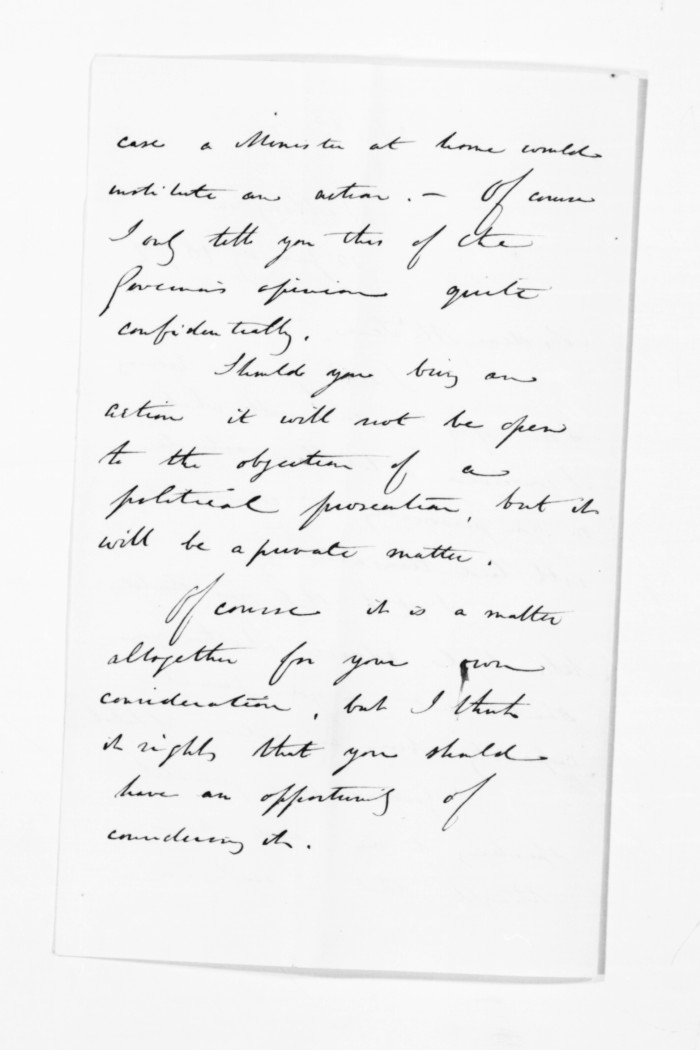 case a Minister at home would
institute an action. — Of course
I only tell you this of the
Governor's opinion quite
confidentially.
Should you bring an
action it will not be open
to the objection of a
political prosecution, but it
will be a private matter.
Of course it is a matter
altogether for your own
consideration, but I think
it right that you should
have an opportunity of
considering it.